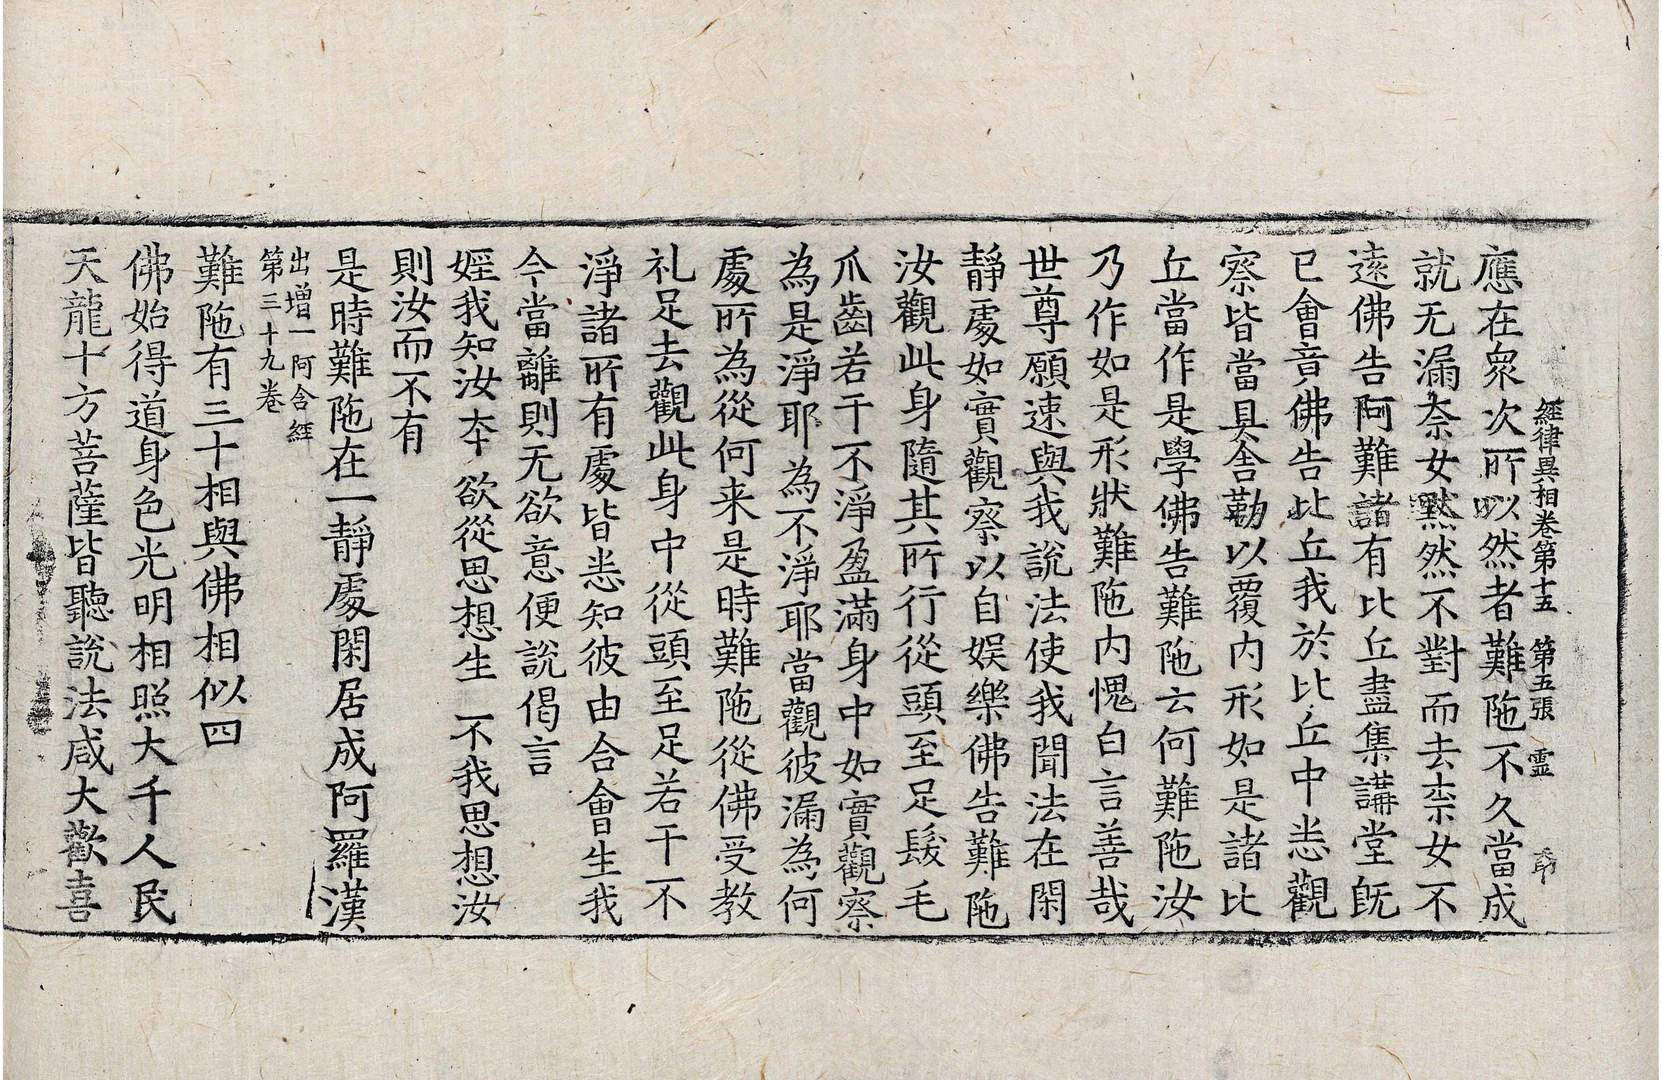 經律異相卷第十五 第五張 霊
應在衆次所以然者難陁不久當成
就无漏柰女黙然不對而去柰女不
遠佛告阿難諸有比丘盡集講堂旣
已會音佛告比丘我於比丘中悉觀
察皆當具舍勒以覆内形如是諸比
丘當作是學佛告難陁云何難陁汝
乃作如是形狀難陁内愧白言善哉
世尊願速與我説法使我聞法在閑
靜處如實觀察以自娱樂佛告難陁
汝觀此身隨其所行從頭至足髮毛
爪齒若干不淨盈滿身中如實觀察
為是淨耶為不淨耶當觀彼漏為何
處所為從何来是時難陁從佛受教
礼足去觀此身中從頭至足若干不
淨諸所有處皆悉知彼由合會生我
今當離則无欲意便説偈言
婬我知汝夲 欲從思想生 不我思想汝
則汝而不有
是時難陁在一靜處閑居成阿羅漢
出增一阿含經
第三十九卷
難陁有三十相與佛相似四
佛始得道身色光明相照大千人民
天龍十方菩薩皆聽説法咸大歡喜